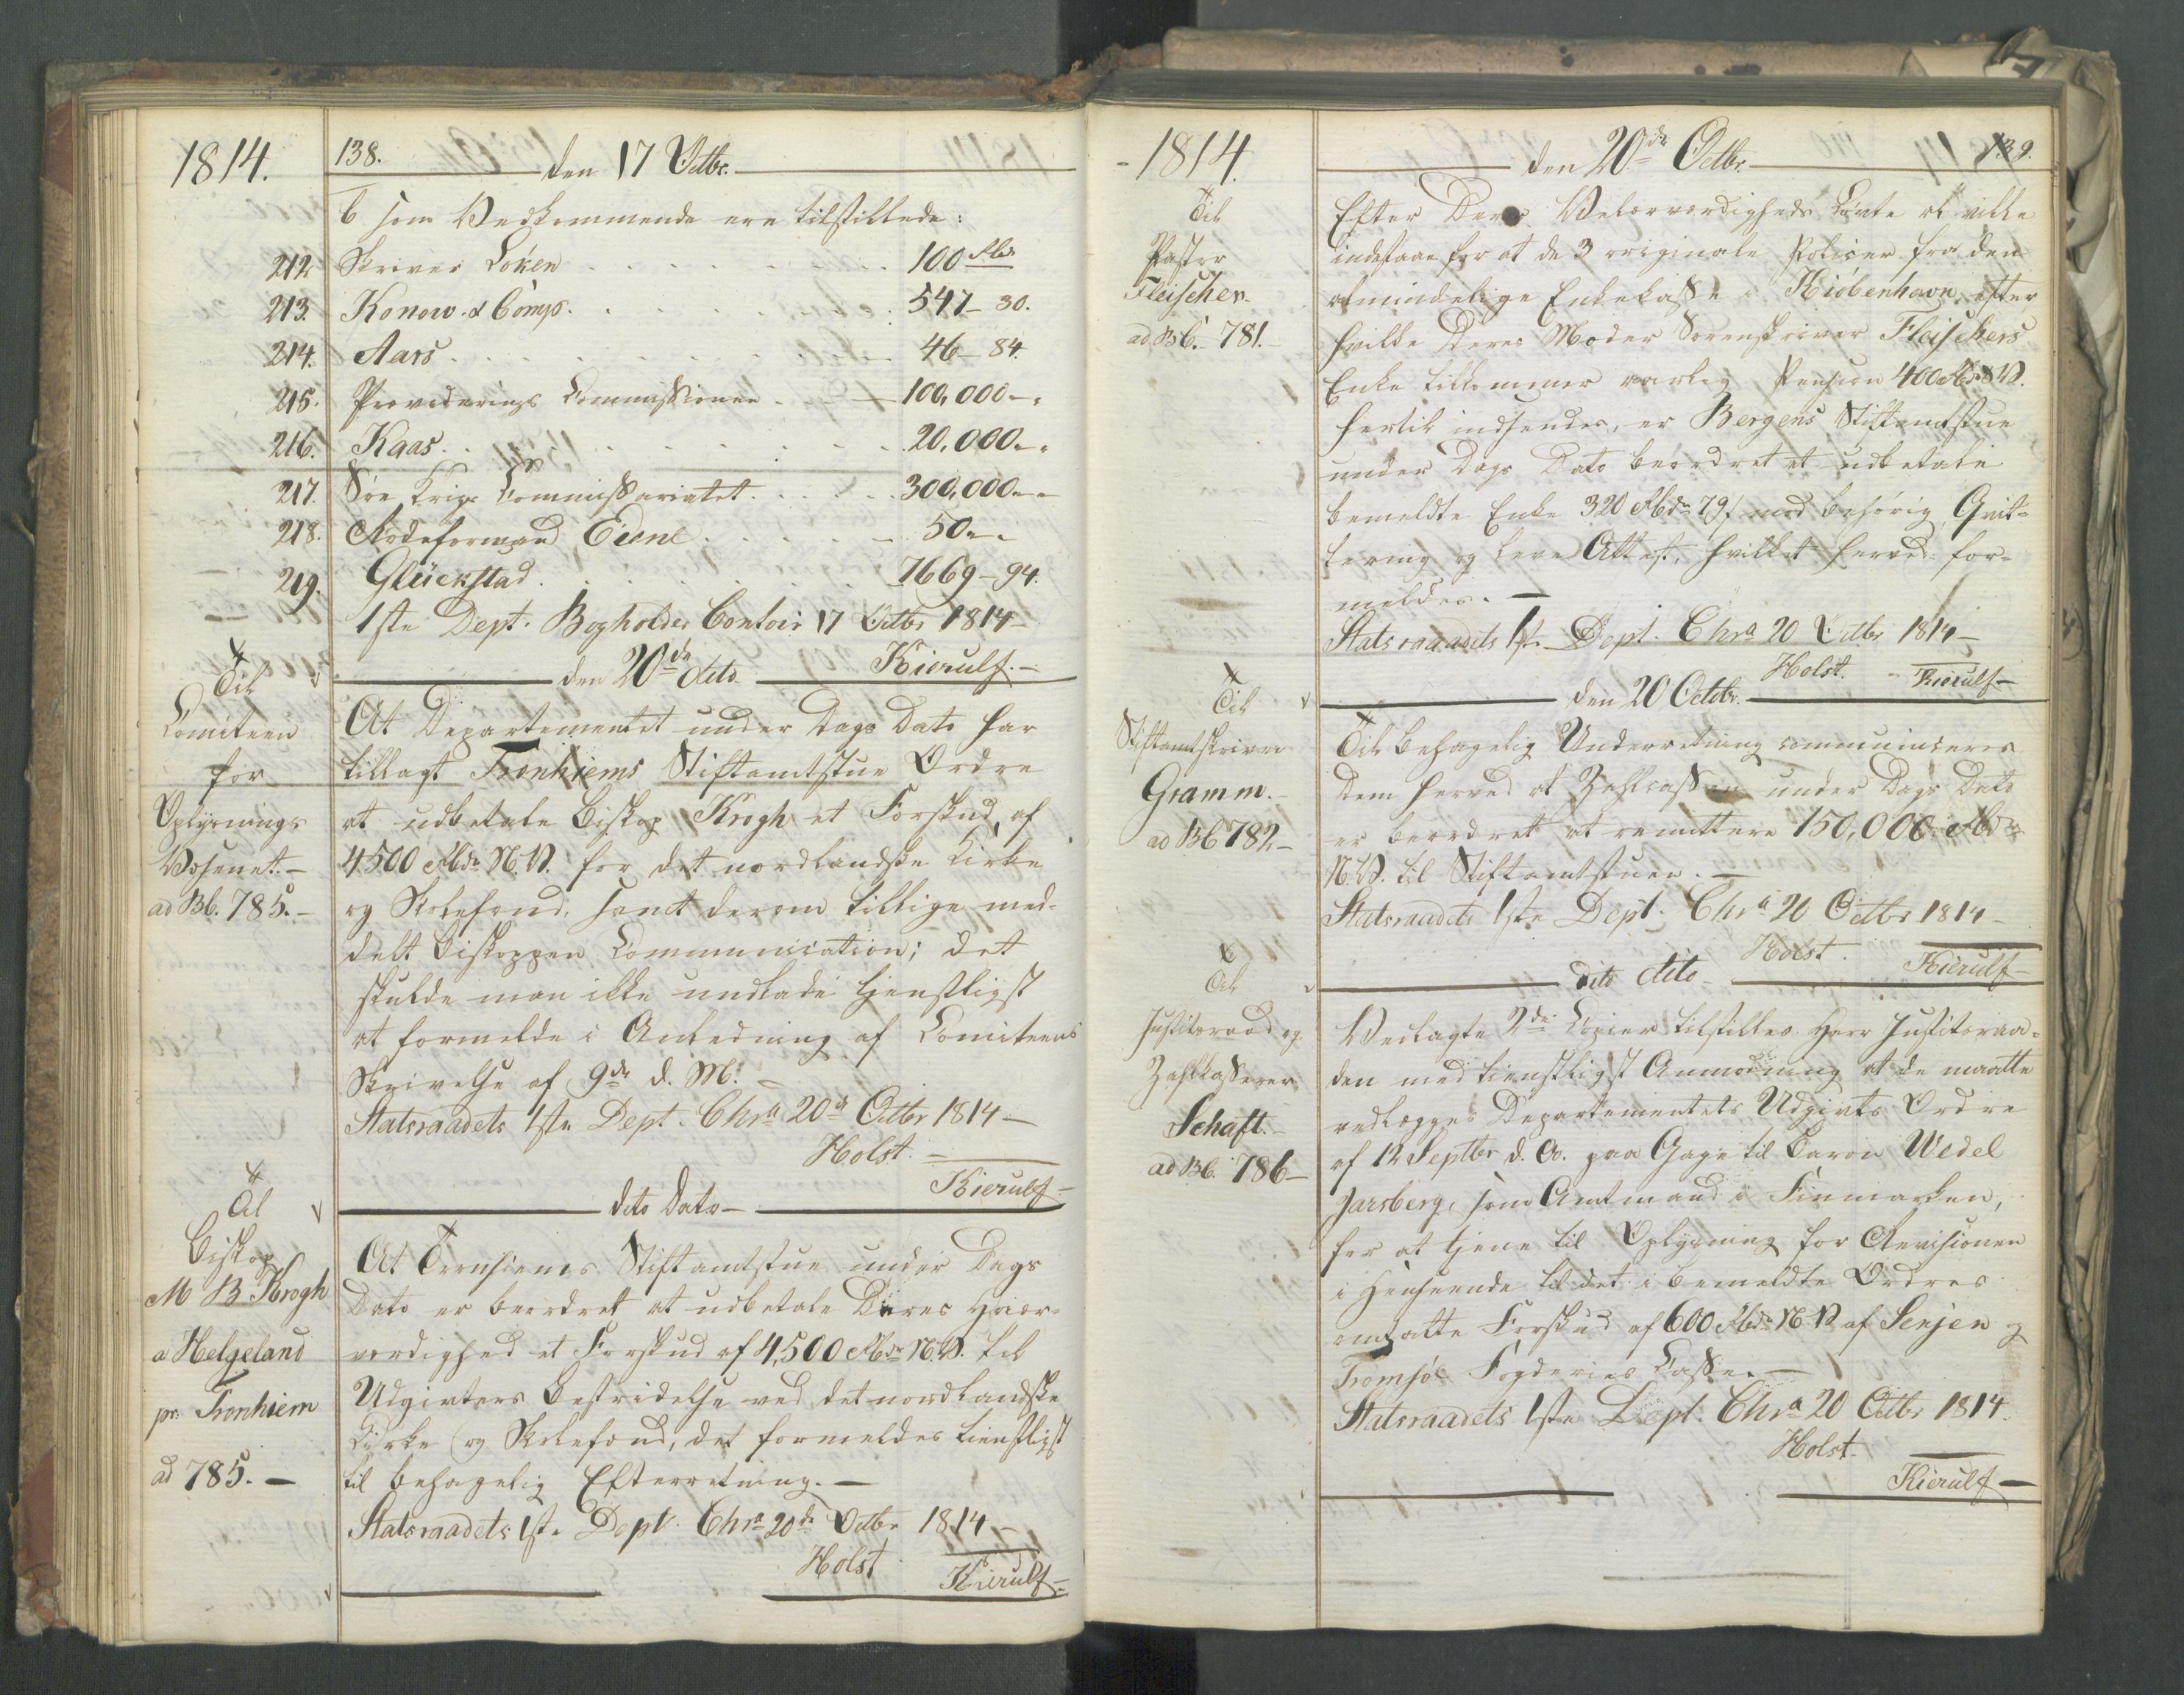 1814.
138.
den 17 Octbr.
6 som Vedkommende ere tilstillede:
212 Skriver Löken 100 Rbd
213. Konow & Comp. 547 - 30.
214. Aars 46 - 84.
215. Provederings Commissionen 100,000 -
216. Kaas 20,000 -
217. Søe Krigs Commissariatet 300,000 -
218. Rodeformand Eiene 50 -
219. Glückstad 7669 - 94.
1ste Dept. Bogholder Contoir 17 Octbr 1814 -
Kierulf. -
den 20de dito
Til
Comiteen
for
Oplysnings
Væsenet. -
ad Bb. 785. -
At Departementet under Dags Dato har
tillagt Tronhiems Stiftamtstue Ordre
at udbetale Biskop Krogh et Forskud af
4500 Rbdr N.V. for det nordlandske Kirke
og Skolefond, samt derom tillige med-
delt Biskoppen Communication; det
skulde man ikke undlade tjenstligst
at formelde i Anledning af Comiteens
Skrivelse af 9de d. M. -
Statsraadets 1ste Dept. Chra 20de Octbr 1814 -
Holst. -
Kierulf -
dito Dato -
Til
Biskop
M B Krogh
a Helgeland
pr. Tronhiem
ad 785. -
At Tronhiems Stiftamtstue under Dags
Dato er beordret at udbetale Deres Høiær-
værdighed et Forskud af 4,500 Rbdr N.V. til
Udgivters Bestridelse ved det nordlandske
Kirke og Skolefond, det formeldes tienstligst
til behagelig Efterretning. -
Statsraadets 1ste Dept. Chra 20de Octbr 1814 -
Holst
Kierulf -
1814.
139.
den 20de Octbr.
Til
Pastor
Fleischer.
ad Bb. 781. -
Efter Deres Velærværdigheds Løvte at ville
indestaae for at de 3 originale Policer fra den
almindelige Enkekasse i Kiöbenhavn, efter
hvilke Deres Moder Sorenskriver Fleischers
Enke tilkommer aarlig Pension 400 Rbdr S.V.
hertil indsendes, er Bergens Stiftamtstue
under Dags Dato beordret at udbetale
bemeldte Enke 320 Rbdr 79 s mod behørig Qvit-
tering og leve Attest, hvilket herved for-
meldes. -
Statsraadets 1ste Dept. Chra 20 Octbr 1814 -
Holst. - Kierulf -
den 20 Octobr.
Til
Stiftamtskriver
Gramm. -
ad Bb 782 -
Til behagelig Underretning communiceres
Dem herved at Zahlcassen under Dags Dato
er beordret at remittere 150,000 Rbdr
N.V. til Stiftamtstuen. -
Statsraadets 1ste Dept. Chra 20 Octbr 1814 -
Holst. Kierulf -
dito dito -
Til
Justitsraad og
Zahlkasserer
Schaft. -
ad Bb. 786 -
Vedlagte 2de Copier tilstilles Herr Justitsraa-
den med tienstligst Anmodning at de maatte
vedlægges Departementets Udgivts Ordre
af 12 Septbr d. A. paa Gage til Baron Wedel
Jarsberg, som Amtmand i Finmarken,
for at tjene til Oplysning for Revisionen
i Henseende til det i bemeldte Ordres
omsatte Forskud af 600 Rbdr N.V. af Senjen og
Tromsöe Fogderies Casse. -
Statsraadets 1ste Dept. Chra 20 Octbr 1814.
Holst.
Kierulf -